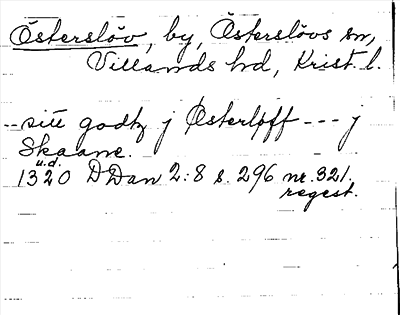 Österslöv, by, Österslövs sn,
Villands hd, Krist. l.
-- sitt godtz j Østerløff --- j
Skaane.
u.d.
1320 DDan 2:8 s. 296 nr. 321.
regest.